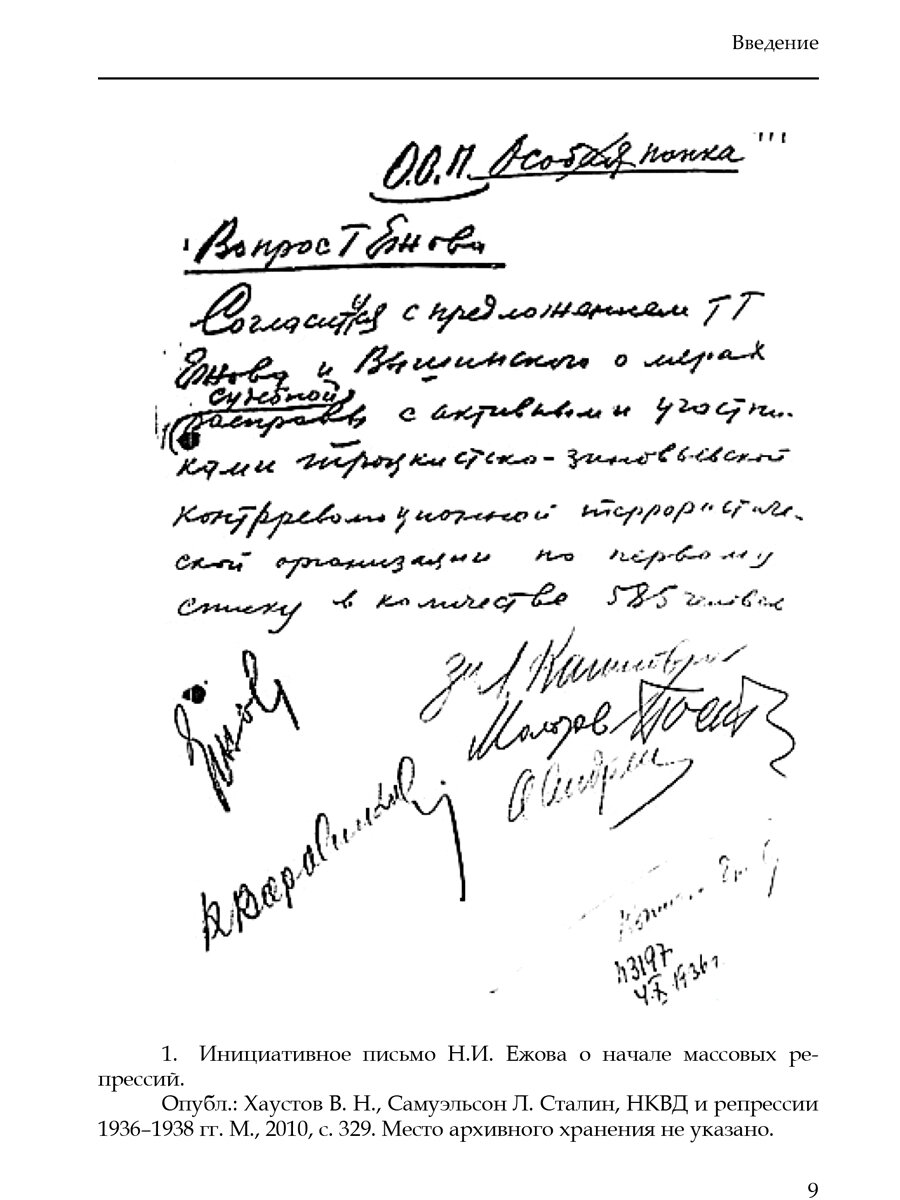 Введение
О.О.П. Особая папка
Вопрос т Ежова
Согласиться с предложением тт
Ежова и Вышинского о мерах
судебной
расправы с активными участни-
ками троцкистско-зиновьевской
контрреволюционной террористиче-
ской организации по первому
списку в количестве 585 человек
за Л. Каганович
Ежов
Молотов Пост
А Андреев
К Ворошилов
Ежов
N 3197
4/X 1936 г.
1. Инициативное письмо Н.И. Ежова о начале массовых ре-
прессий.
Опубл.: Хаустов В. Н., Самуэльсон Л. Сталин, НКВД и репрессии
1936–1938 гг. М., 2010, с. 329. Место архивного хранения не указано.
9